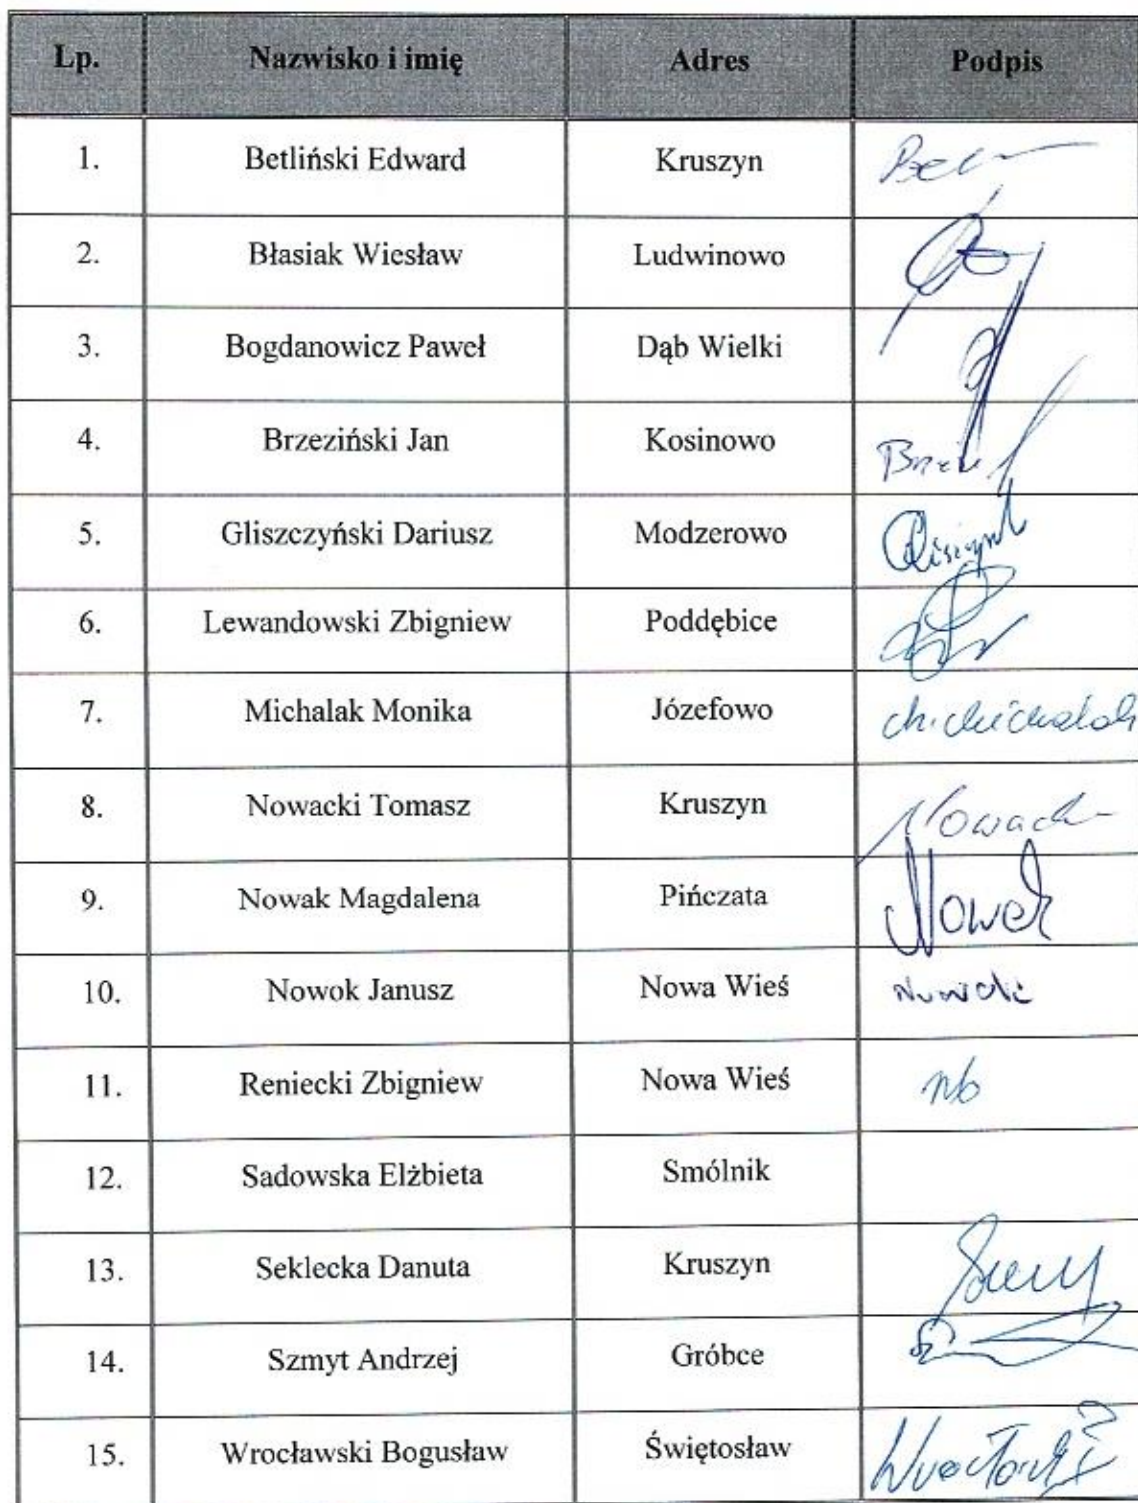 Lp. Nazwisko i imię Adres Podpis
1. Betliński Edward Kruszyn
2. Błasiak Wiesław Ludwinowo
3. Bogdanowicz Paweł Dąb Wielki
4. Brzeziński Jan Kosinowo
5. Gliszczyński Dariusz Modzerowo
6. Lewandowski Zbigniew Poddębice
7. Michalak Monika Józefowo
8. Nowacki Tomasz Kruszyn
9. Nowak Magdalena Pińczata Nowak
10. Nowok Janusz Nowa Wieś
11. Reniecki Zbigniew Nowa Wieś nb
12. Sadowska Elżbieta Smólnik
13. Seklecka Danuta Kruszyn
14. Szmyt Andrzej Gróbce
15. Wrocławski Bogusław Świętosław